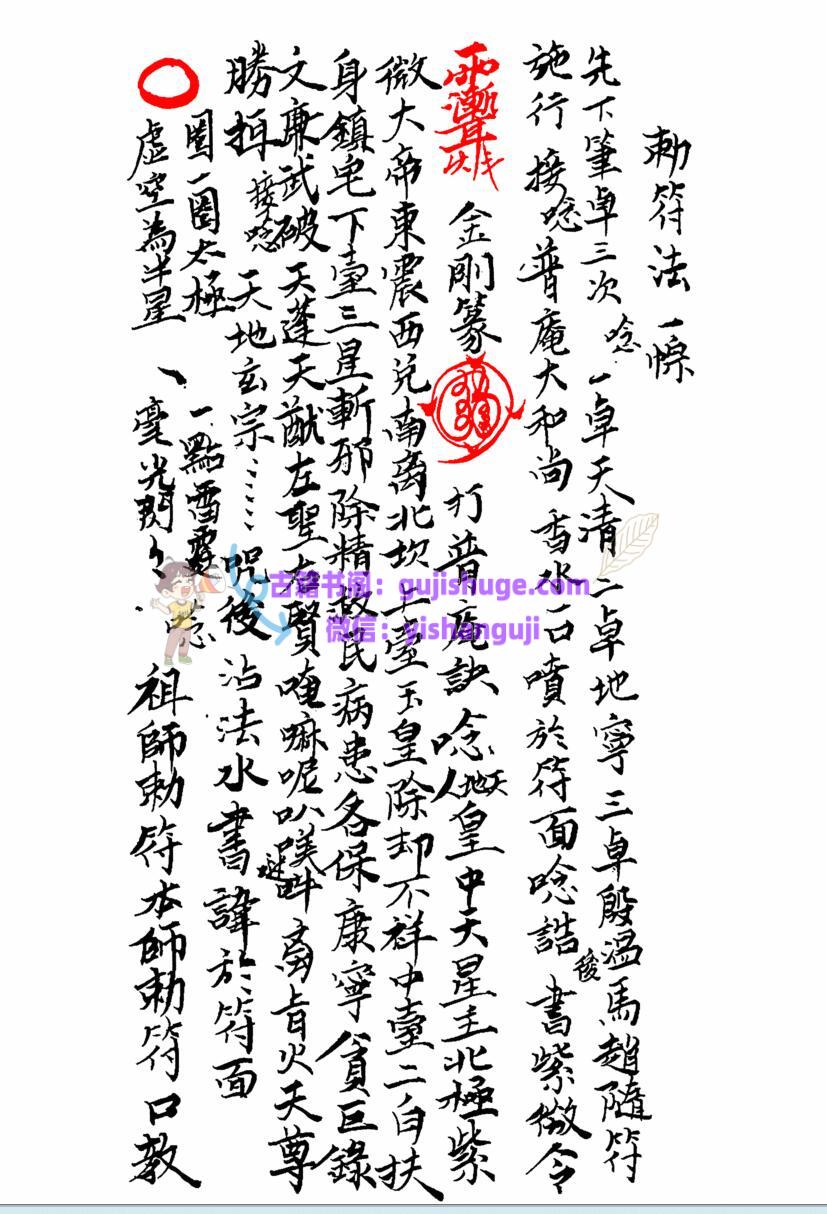 勅符法一宗
先下筆卓三次 唸 一卓天清二卓地寧三卓殷温馬趙隨符
施行 接唸 普庵大和尚 香水一口噴於符面唸誥 後 書紫微令
金剛篆 打普庵訣 唸 天地人 皇中天星主北極紫
微大帝東震西兌南离北坎上臺玉皇除却不祥中臺二白扶
身鎮宅下臺三星斬邪除精救民病患各保康寧貪巨錄
文廉武破天蓬天猷左聖右賢唵嘛呢叭 吽 火天尊
勝揖 接唸 天地玄宗…… 咒後 沾法水書諱於符面
圈一圈太極 一點雷霆
虛空為半星 、毫光閃々 祖師勅符本師勅符口教
古籍书阁：gujishuge.com
微信：yishanguji